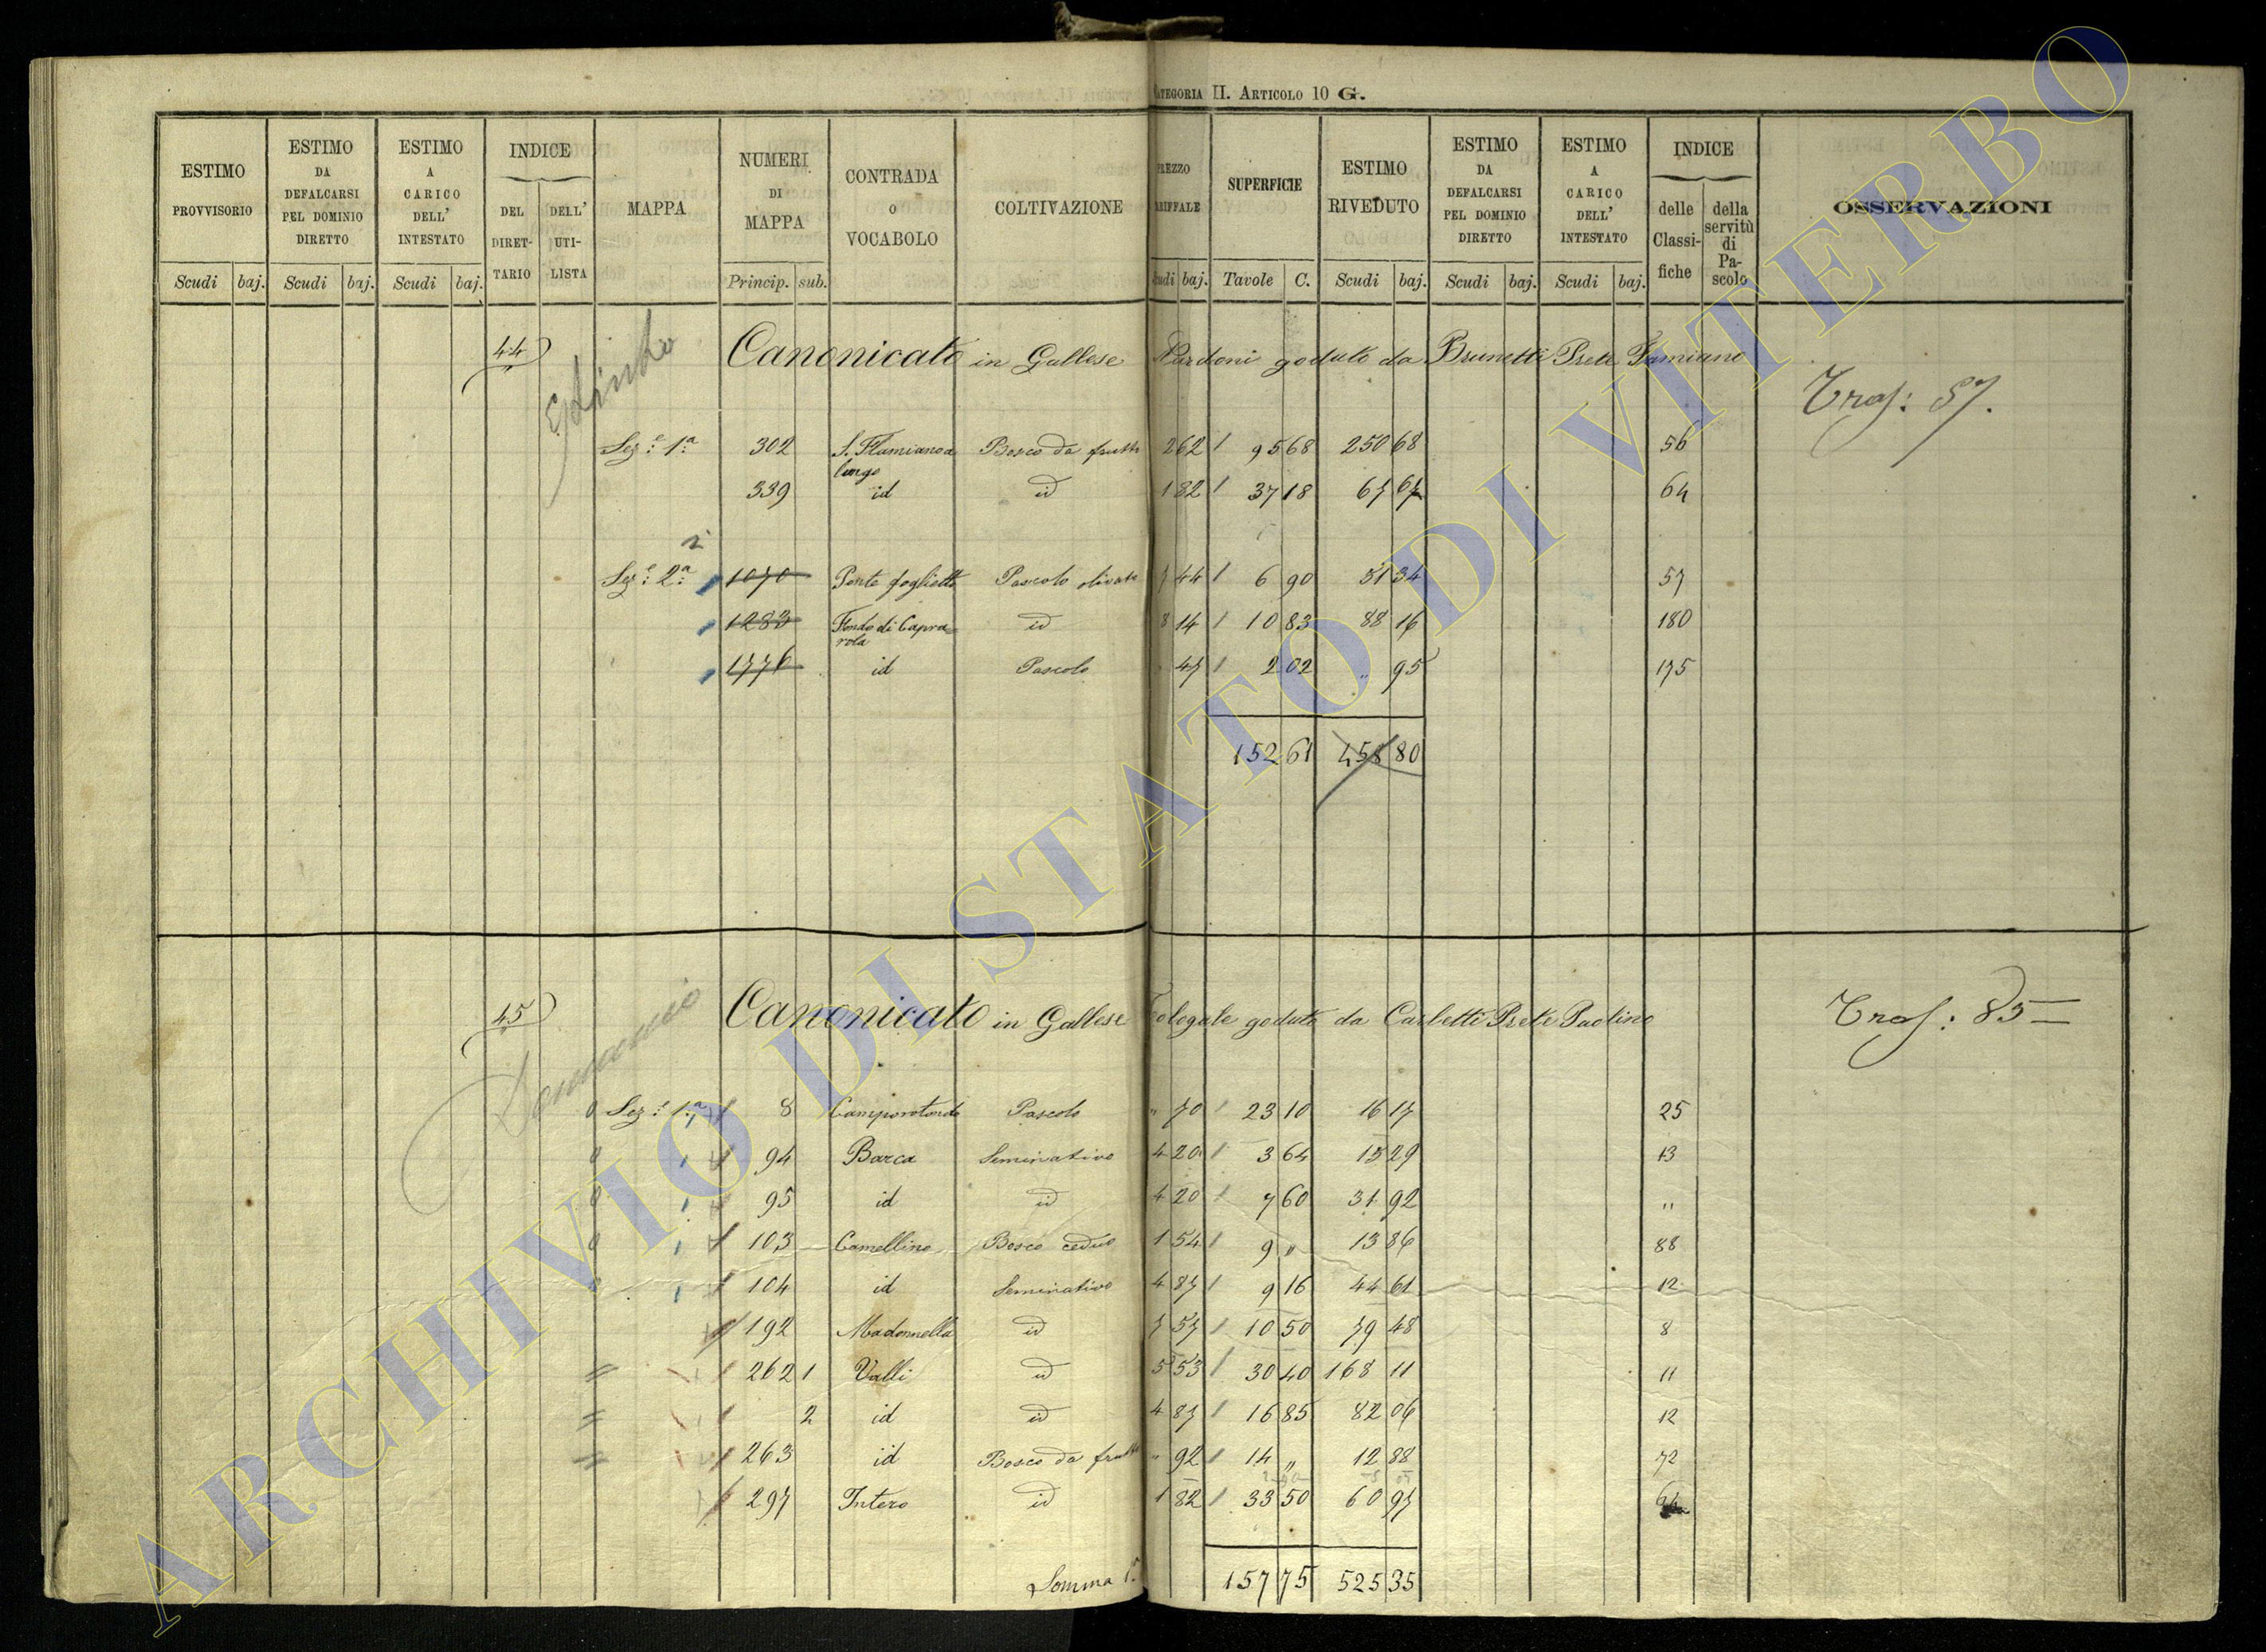 CATEGORIA II. ARTICOLO 10 G.
ESTIMO PROVVISORIO
ESTIMO DA DEFALCARSI PEL DOMINIO DIRETTO
ESTIMO A CARICO DELL' INTESTATO
INDICE
DEL DIRET-TARIO
DELL' UTI-LISTA
MAPPA
NUMERI DI MAPPA
CONTRADA O VOCABOLO
COLTIVAZIONE
PREZZO TARIFFALE
SUPERFICIE
ESTIMO RIVEDUTO
ESTIMO DA DEFALCARSI PEL DOMINIO DIRETTO
ESTIMO A CARICO DELL' INTESTATO
INDICE
delle Classi-fiche
della servitù di Pa-scolo
OSSERVAZIONI
Scudi baj. Scudi baj. Scudi baj. Princip. sub. Scudi baj. Tavole C. Scudi baj. Scudi baj. Scudi baj.
44 Canonicato in Gallese Nardoni goduto da Brunetti Prete Famiano
Estinto
Traf: 87.
Sez.e 1a 302 S. Flamiano a lungo Bosco da frutto 2 62 95 68 250 68 56
339 id id 1 82 37 18 67 67 64
2
Sez.e 2a 1070 Ponte foglietto Pascolo olivato 7 44 6 90 51 34 57
1283 Fondo di Caprarola id 8 14 10 83 88 16 180
1776 id Pascolo " 47 2 02 " 95 175
152 61 458 80
45 Canonicato in Gallese Teologale goduto da Carletti Prete Paolino
Demanio
Traf: 85
0 Sez.e 1a 8 Camporotondo Pascolo " 70 23 10 16 17 25
0 94 Barca Seminativo 4 20 3 64 15 29 13
0 95 id id 4 20 7 60 31 92 "
0 103 Camellino Bosco ceduo 1 54 9 " 13 86 88
0 104 id Seminativo 4 87 9 16 44 61 12
192 Madonnella id 7 57 10 50 79 48 8
262 1 Valli id 5 53 30 40 168 11 11
2 id id 4 87 16 85 82 06 12
263 id Bosco da frutto " 92 14 " 12 88 72
297 Intero id 1 82 33 50 60 97 64
Somma 1a 157 75 525 35
ARCHIVIO DI STATO DI VITERBO